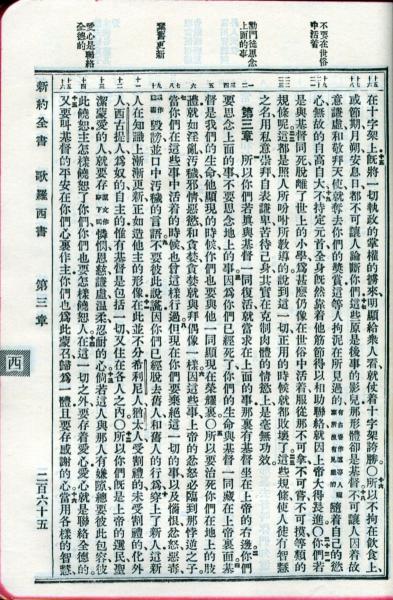 不要在世俗
中活着
勸門徒思念
上面的事
棄舊更新
愛心是聯絡
全德的
在十字架上旣將一切執政的掌權的擄來明顯給衆人看就仗着十字架誇勝○所以不拘在飲食上、
或節期月朔安息日都不可讓人論斷你們這些原是後事的影兒那形體卻是基督不可讓人因着故
意謙虛和敬拜天使就奪去你們的獎賞這等人拘泥在所見過的隨着自己的慾
心無故的自高自大不持定元首全身旣然靠着他筋節得以相助聯絡就因上帝大得長進○你們若
是與基督同死脫離了世上的小學爲甚麼仍像在世俗中活着服從那不可拿不可嘗不可摸等類的
規條呢這都是照人所吩咐所教導的說到這一切正用的時候就都敗壞了這些規條使人徒有智慧
之名用私意崇拜自表謙卑苦待己身其實在克制肉體的情慾上是毫無功效。
第三章 所以你們若眞與基督一同復活就當求在上面的事那裏有基督坐在上帝的右邊你們
要思念上面的事不要思念地上的事因爲你們已經死了你們的生命與基督一同藏在上帝裏面基
督是我們的生命他顯現的時候你們也要與他一同顯現在榮耀裏○所以要治死你們在地上的肢
體就如淫亂汚穢邪情惡慾和貪婪貪婪就與拜偶像一樣因這些事上帝的忿怒必臨到那悖逆之子
當你們在這些事中活着的時候也曾這樣行過但現在你們要棄絕這一切的事以及惱恨忿怒惡毒
毀謗並口中汚穢的言語不要彼此說謊因你們已經脫去舊人和舊人的行爲穿上了新人這新
人在知識上漸漸更新正如造他主的形像在此並不分希利尼人猶太人受割禮的未受割禮的化外
人西古提人爲奴的自主的惟有基督是包括一切又住在各人之內○所以你們旣是上帝的選民聖
潔蒙愛的人就要存憐憫恩慈謙虛溫柔忍耐的心倘若這人與那人有嫌隙總要彼此包容彼
此饒恕主怎樣饒恕了你們你們也要怎樣饒恕人在這一切之外要存着愛心愛心就是聯絡全德的
又要叫基督的平安在你們心裏作主你們也爲此蒙召歸爲一體且要存感謝的心當用各樣的智慧、
新約全書 歌羅西書 第三章 二百六十五
西